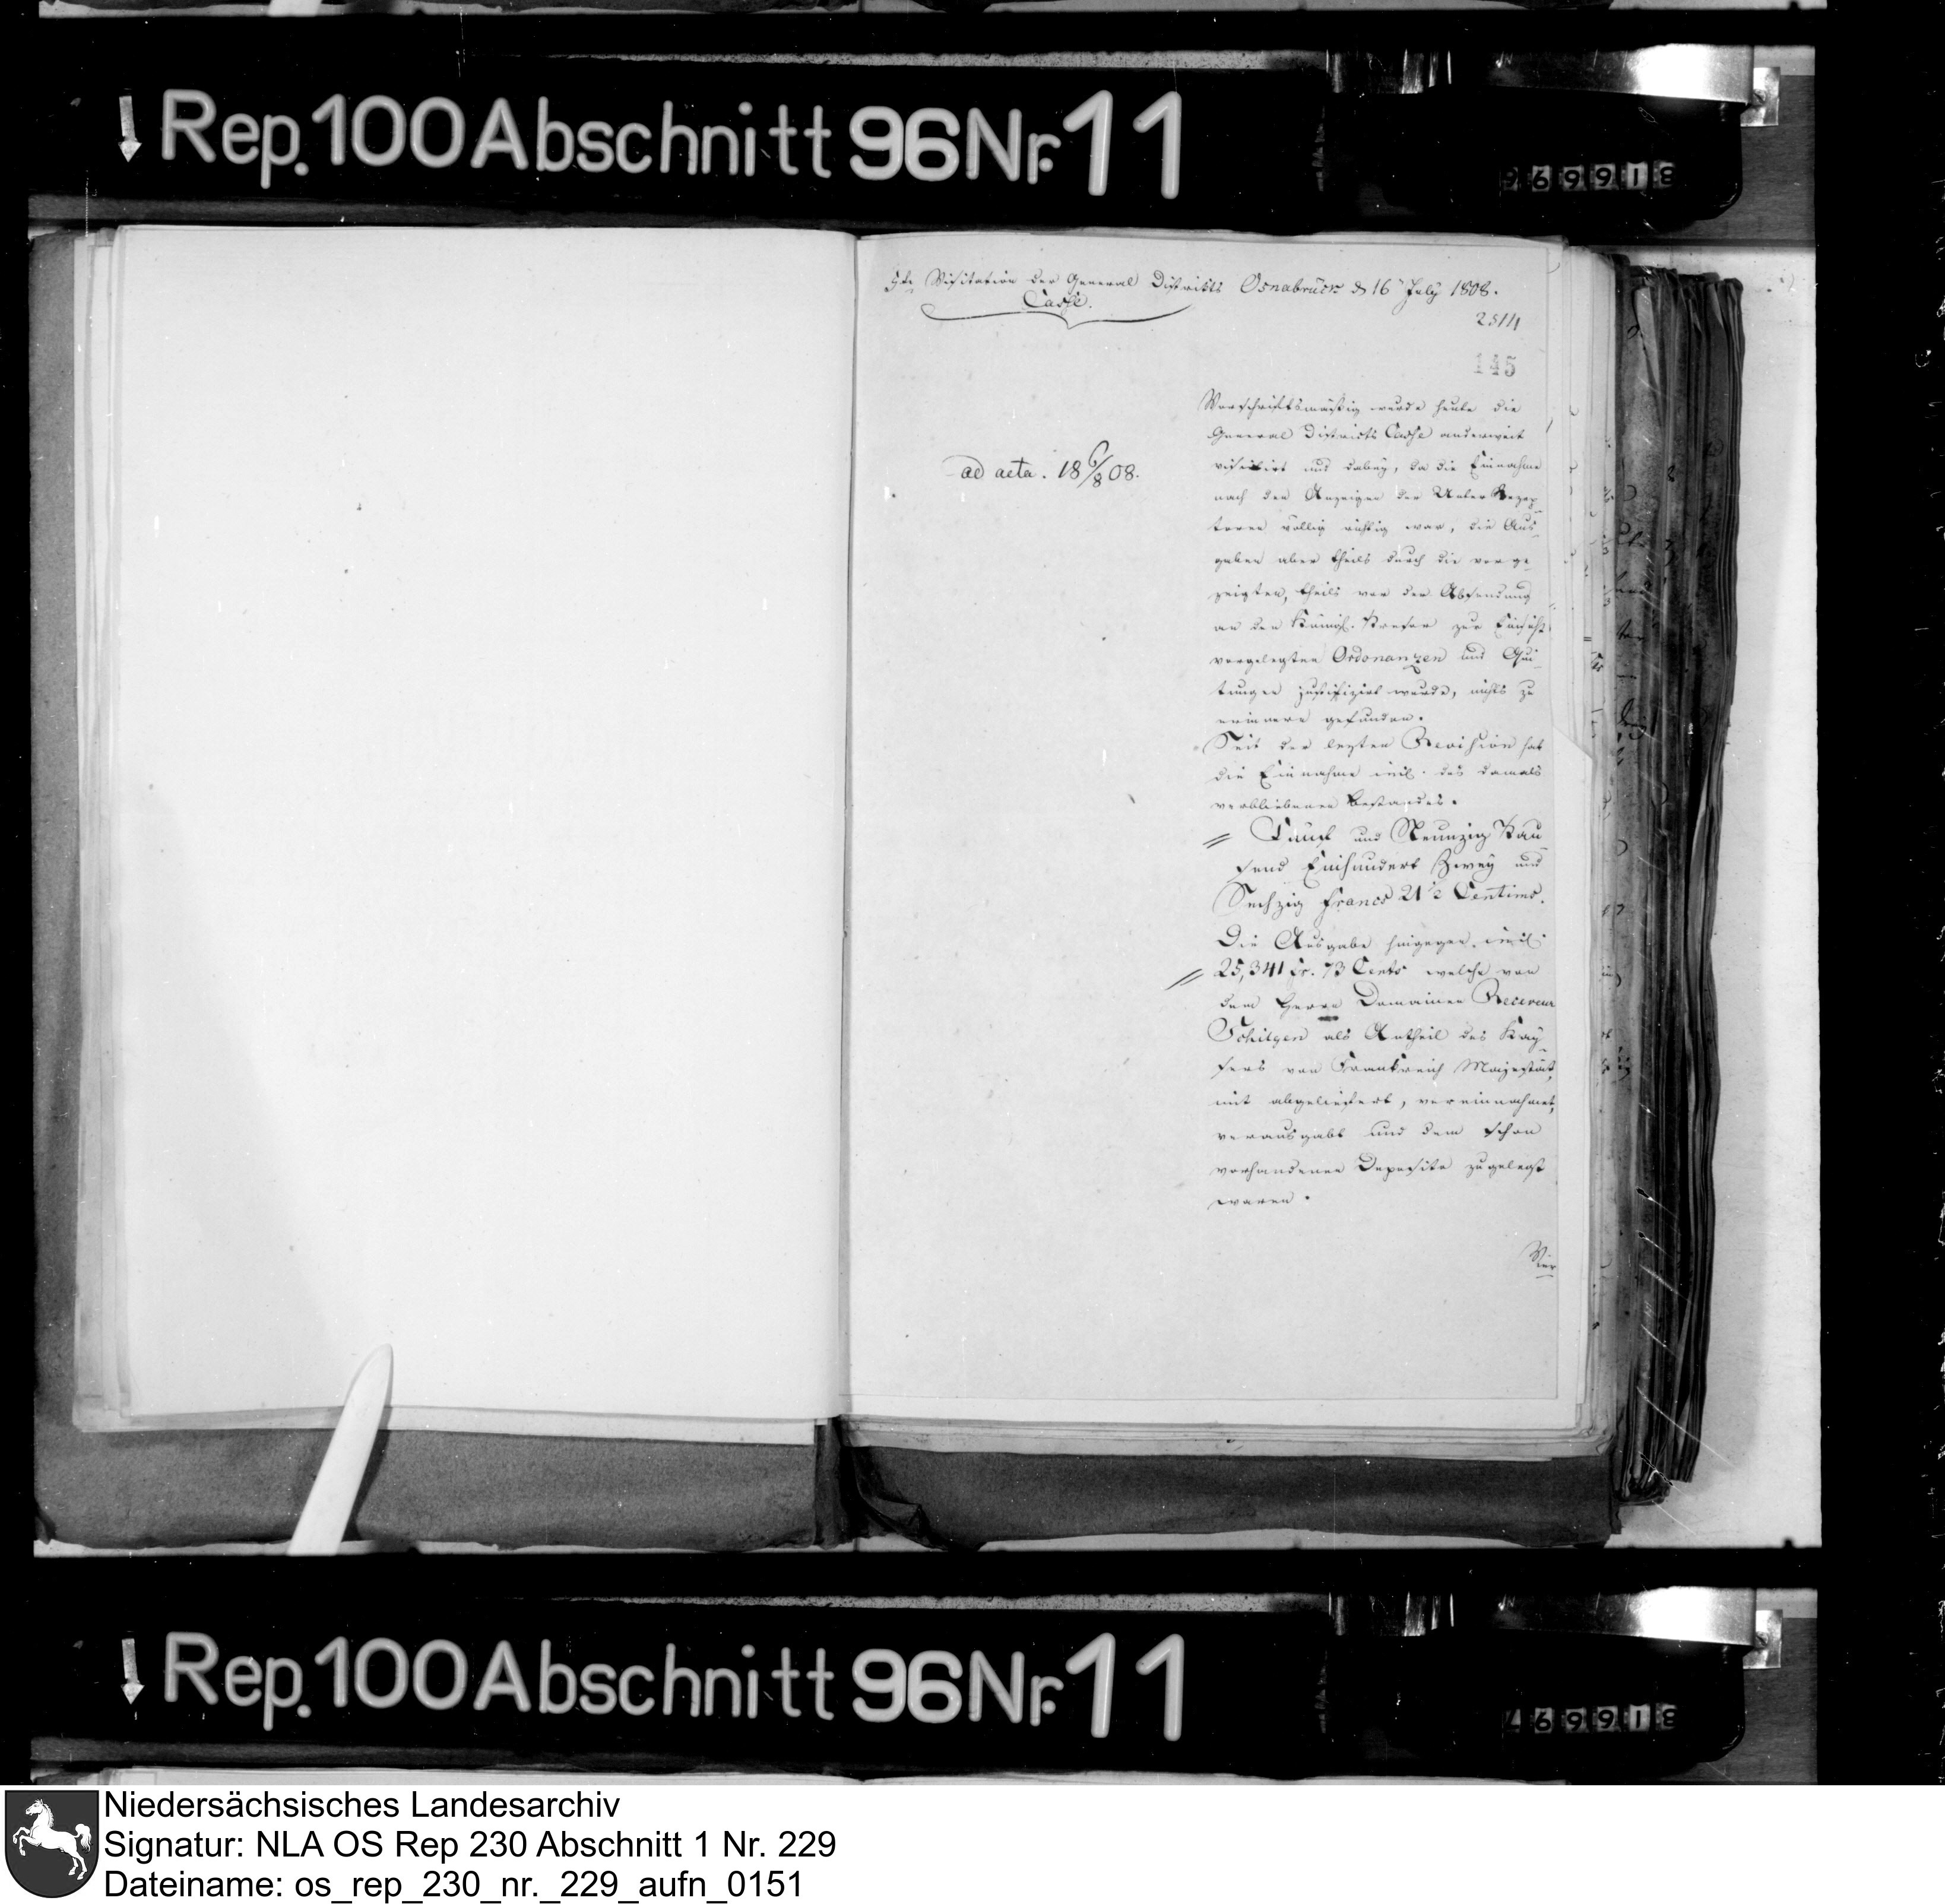 Rep. 100 Abschnitt 96 Nr. 11
969918
5te Visitation der General Districts Osnabrück d 16 July 1808.
Casse.
2514
145
ad acta. 18 6/8 08.
Vorschriftsmäßig wurde heute die
General Districts Casse anderweit
visitirt und dabey, da die Einnahme
nach den Anzeigen der Unter Rezep
toren völlig richtig war, die Aus
gaben aber theils durch die vorge
zeigten, theils vor der Absendung
an den Königl. Tresor zur Einsicht
vorgelegten Ordonanzen und Qui
tungen justifizirt wurde, nichts zu
erinnern gefunden.
Seit der lezten Revision hat
die Einnahme incl. des damals
verbliebenen Bestandes.
Fünf und Neunzig Tau
send Einhundert Zwey und
Sechzig francs 21 1/2 Centims.
Die Ausgabe hingegen incl.
25,341 fr. 73 Cents welche von
dem Herrn Domainen Receveur
Schilgen als Antheil des Kay
sers von Frankreich Majestät,
mit abgeliefert, vereinnahmt,
verausgabt und dem schon
vorhandenen Deposito zugelegt
waren.
Vier
Rep. 100 Abschnitt 96 Nr. 11
469918
Niedersächsisches Landesarchiv
Signatur: NLA OS Rep 230 Abschnitt 1 Nr. 229
Dateiname: os_rep_230_nr._229_aufn_0151